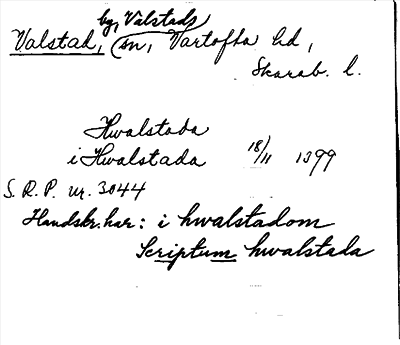 by, Valstads
Valstad, sn, Vartofta hd,
Skarab. l.
Hwalstada
i Hwalstada 18/11 1399
S. R. P. nr. 3044
Handskr. har: i hwalstadom
Scriptum hwalstada